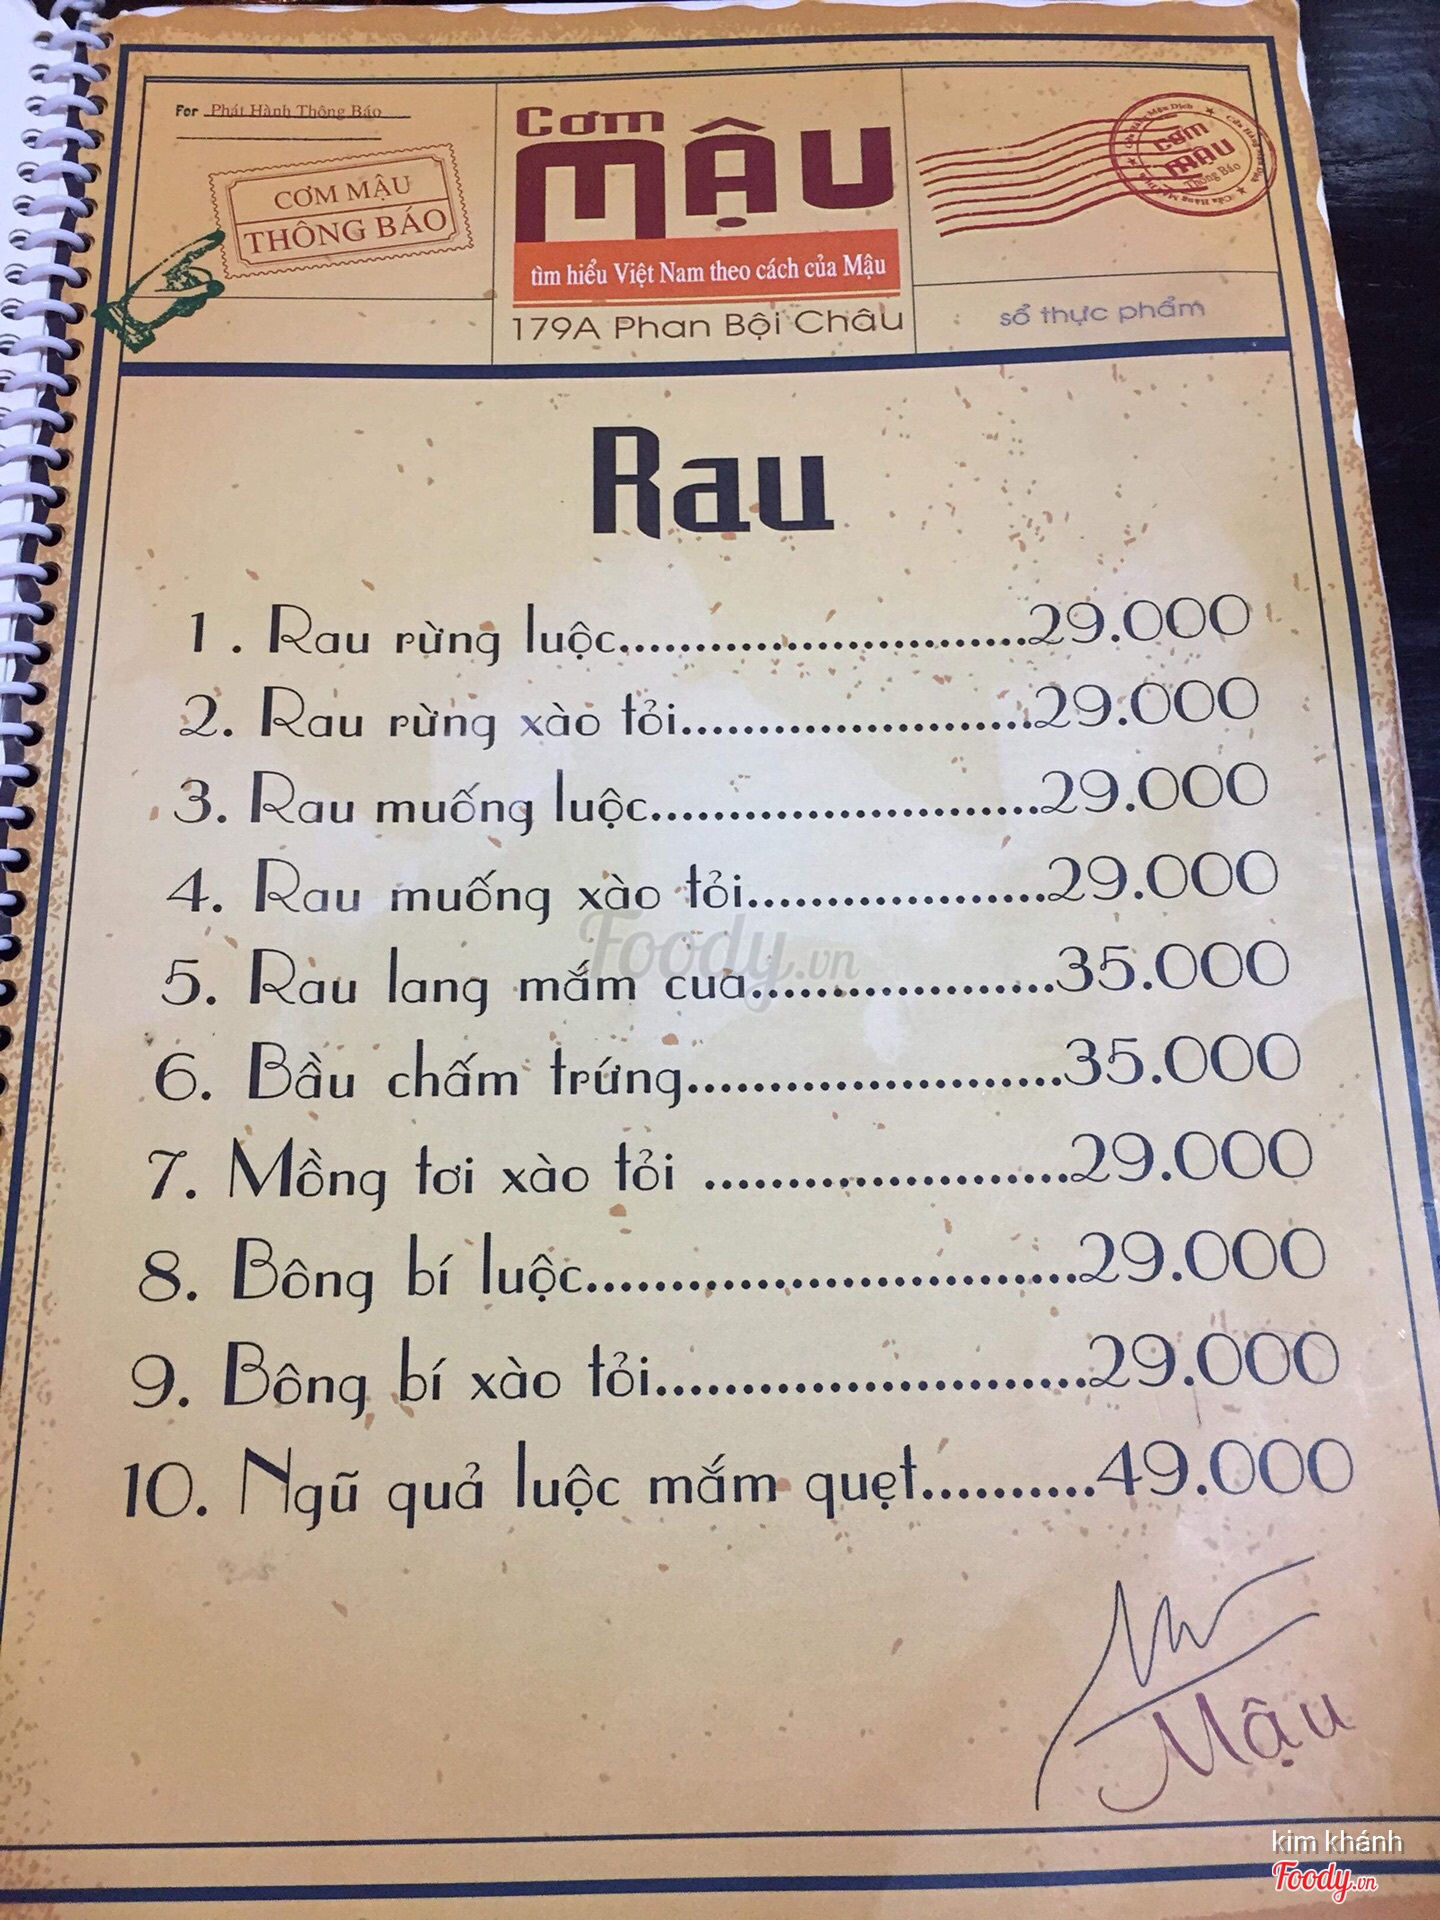 For Phát Hành Thông Báo
CƠM MẬU
THÔNG BÁO
Cơm
MẬU
tìm hiểu Việt Nam theo cách của Mậu
179A Phan Bội Châu
cơm
MẬU
Thông Báo
sổ thực phẩm
Rau
1 . Rau rừng luộc............................29.000
2. Rau rừng xào tỏi........................29.000
3. Rau muống luộc...........................29.000
4. Rau muống xào tỏi.....................29.000
5. Rau lang mắm cua.....................35.000
6. Bầu chấm trứng..........................35.000
7. Mồng tơi xào tỏi .........................29.000
8. Bông bí luộc..................................29.000
9. Bông bí xào tỏi.............................29.000
10. Ngũ quả luộc mắm quẹt...........49.000
Mậu
Foody.vn
kim khánh
Foody.vn